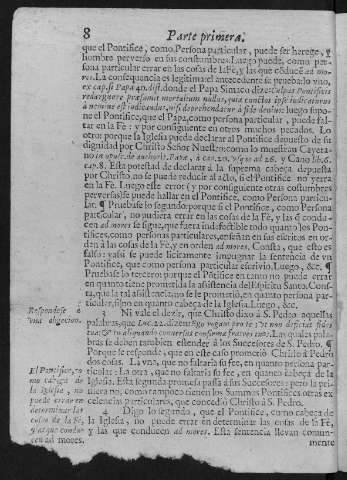 8 Parte primera.
que el Pontifice, como Persona particular, puede ser herege, y
hombre perverso en sus costumbres. Luego puede, como per-
sona particular errar en las cosas de la Fè, y las que cõducẽ ad mo-
res. La consequencia es legitima: el antecedente se prueba: lo vno,
ex cap. si Papa 40. dist. donde el Papa dize: Culpas Pontificis
redarguere præsumit mortalium nullus, quia cunctos ipse iudicaturus
à nemine est iudicandus, nisi deprehendatur à fide devius: luego supo-
ne el Pontifice, que el Papa, como persona particular, puede fal-
tar en la Fè: y por configuiente en otros muchos pecados. Lo
otro: porque la Iglesia puede declarar al Pontifice depuesto de su
dignidad por Christo Señor Nuestro: como lo muestran Cayeta-
no in opusc. de auctorit. Papæ, à cap. 20. vsque ad 26. y Cano lib. 6.
cap. 8. Esta potestad de declarar à la suprema cabeça depuesta
por Christo, no se puede reducir al acto, si el Pontifice no yerra
en la Fè. Luego este error (y por configuiente otras costumbres
perversas) se puede hallar en el Pontifice, como Persona particu-
lar. ¶ Pruebase lo segundo: porque si el Pontifice, como Persona
particular, no pudiera errar en las cosas de la Fè, y las q̃ condu-
cen ad mores se sigue, que fuera indefectible todo quanto los Pon-
tifices, como personas particulares, enseñan en sus escritos en or-
den à las cosas de la Fè, y en orden ad mores. Consta, que esto es
falso: y assi se puede licitamente impugnar la sentencia de vn
Pontifice, que como persona particular escrivio. Luego, &c. ¶
Pruebase lo tercero: porque el Põtifice en tanto no puede errar
en quanto tiene prometida la assistencia del Espiritu Santo. Cons-
ta, que la tal assistencia no se le prometiò, en quanto persona par-
ticular, sino en quanto cabeça de la Iglesia. Luego, &c.
Respondese à
vna objecion.
3 Ni vale el dezir, que Christo dixo à S. Pedro aquellas
palabras, que Luc. 22. dizen: Ego rogavi pro te, vt non deficiat fides
tua: & tu aliquando conversus confirma fratres tuos. Las quales pala-
bras se deben tambien estender à los Successores de S. Pedro. ¶
Porque se responde, que en este caso prometiò Christo à Pedro
dos cosas. La vna, que no faltaria su fee, en quanto persona par-
ticular: La otra, que no faltaria su fee, en quanto cabeça de la
Iglesia. Esta segunda promesa passò à sus Successores: pero la pri-
mera no, como tampoco tienen los Summos Pontifices otras ex-
celencias particulares, que concediò Christo à S. Pedro.
El Pontifice, co
mo cabeça de
la Iglesia, no
puede errar en
determinar las
cosas de la Fè,
y las que condu-
cen ad mores.
4 Digo lo segundo, que el Pontifice, como cabeça de
la Iglesia, no puede errar en determinar las cosas de la Fè,
y las que conducen ad mores. Esta sentencia llevan comun-
mente